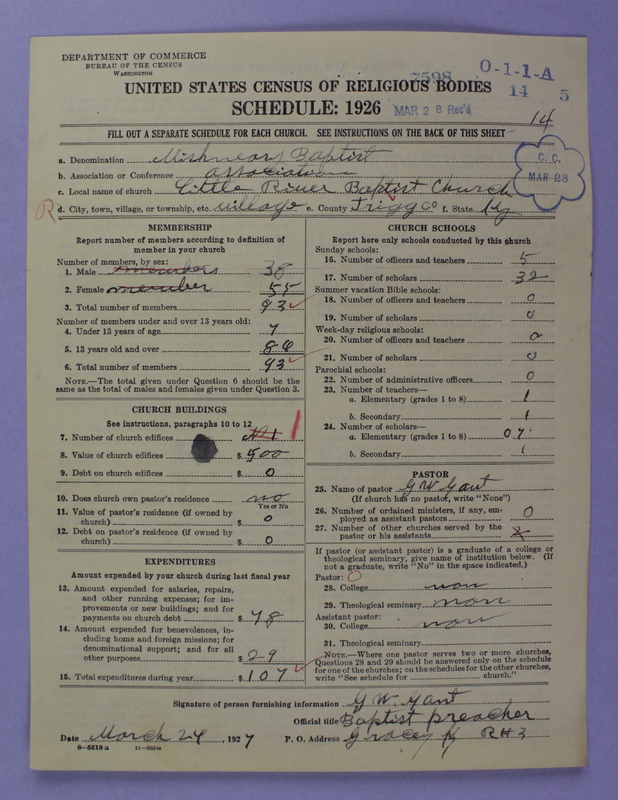 DEPARTMENT OF COMMERCE
BUREAU OF THE CENSUS
WASHINGTON
7598 O-1-1-A
14 5
UNITED STATES CENSUS OF RELIGIOUS BODIES
SCHEDULE: 1926
MAR 26 Rec'd
14
FILL OUT A SEPARATE SCHEDULE FOR EACH CHURCH. SEE INSTRUCTIONS ON THE BACK OF THIS SHEET
C. C.
MAR 28
a. Denomination Baptist
b. Association or Conference association
c. Local name of church Little River Baptist Church
R d. City, town, village, or township, etc. village e. County Trigg co f. State Ky
MEMBERSHIP
Report number of members according to definition of
member in your church
Number of members, by sex:
1. Male members 38
2. Female member 55
3. Total number of members 93
Number of members under and over 13 years old:
4. Under 13 years of age 7
5. 13 years old and over 86
6. Total number of members 93
NOTE.—The total given under Question 6 should be the
same as the total of males and females given under Question 3.
CHURCH BUILDINGS
See instructions, paragraphs 10 to 12
7. Number of church edifices 1
8. Value of church edifices $ 500
9. Debt on church edifices $ 0
10. Does church own pastor's residence no
Yes or No
11. Value of pastor's residence (if owned by
church) $ 0
12. Debt on pastor's residence (if owned by
church) $ 0
EXPENDITURES
Amount expended by your church during last fiscal year
13. Amount expended for salaries, repairs,
and other running expenses; for im-
provements or new buildings; and for
payments on church debt $ 78
14. Amount expended for benevolences, in-
cluding home and foreign missions; for
denominational support; and for all
other purposes $ 29
15. Total expenditures during year $ 107
CHURCH SCHOOLS
Report here only schools conducted by this church
Sunday schools:
16. Number of officers and teachers 5
17. Number of scholars 32
Summer vacation Bible schools:
18. Number of officers and teachers 0
19. Number of scholars 0
Week-day religious schools:
20. Number of officers and teachers 0
21. Number of scholars 0
Parochial schools:
22. Number of administrative officers 0
23. Number of teachers—
a. Elementary (grades 1 to 8) 1
b. Secondary 1
24. Number of scholars—
a. Elementary (grades 1 to 8) 07
b. Secondary 1
PASTOR
25. Name of pastor G W Gant
(If church has no pastor, write "None")
26. Number of ordained ministers, if any, em-
ployed as assistant pastors 0
27. Number of other churches served by the
pastor or his assistants
If pastor (or assistant pastor) is a graduate of a college or
theological seminary, give name of institution below. (If
not a graduate, write "No" in the space indicated.)
Pastor: O
28. College non
29. Theological seminary non
Assistant pastor:
30. College non
31. Theological seminary
NOTE.—Where one pastor serves two or more churches,
Questions 28 and 29 should be answered only on the schedule
for one of the churches; on the schedules for the other churches,
write "See schedule for church."
Signature of person furnishing information G. W. Gant
Official title Baptist preacher
Date March 24, 1927 P. O. Address Gracey Ky R#3
6—5518 a 11—9064a